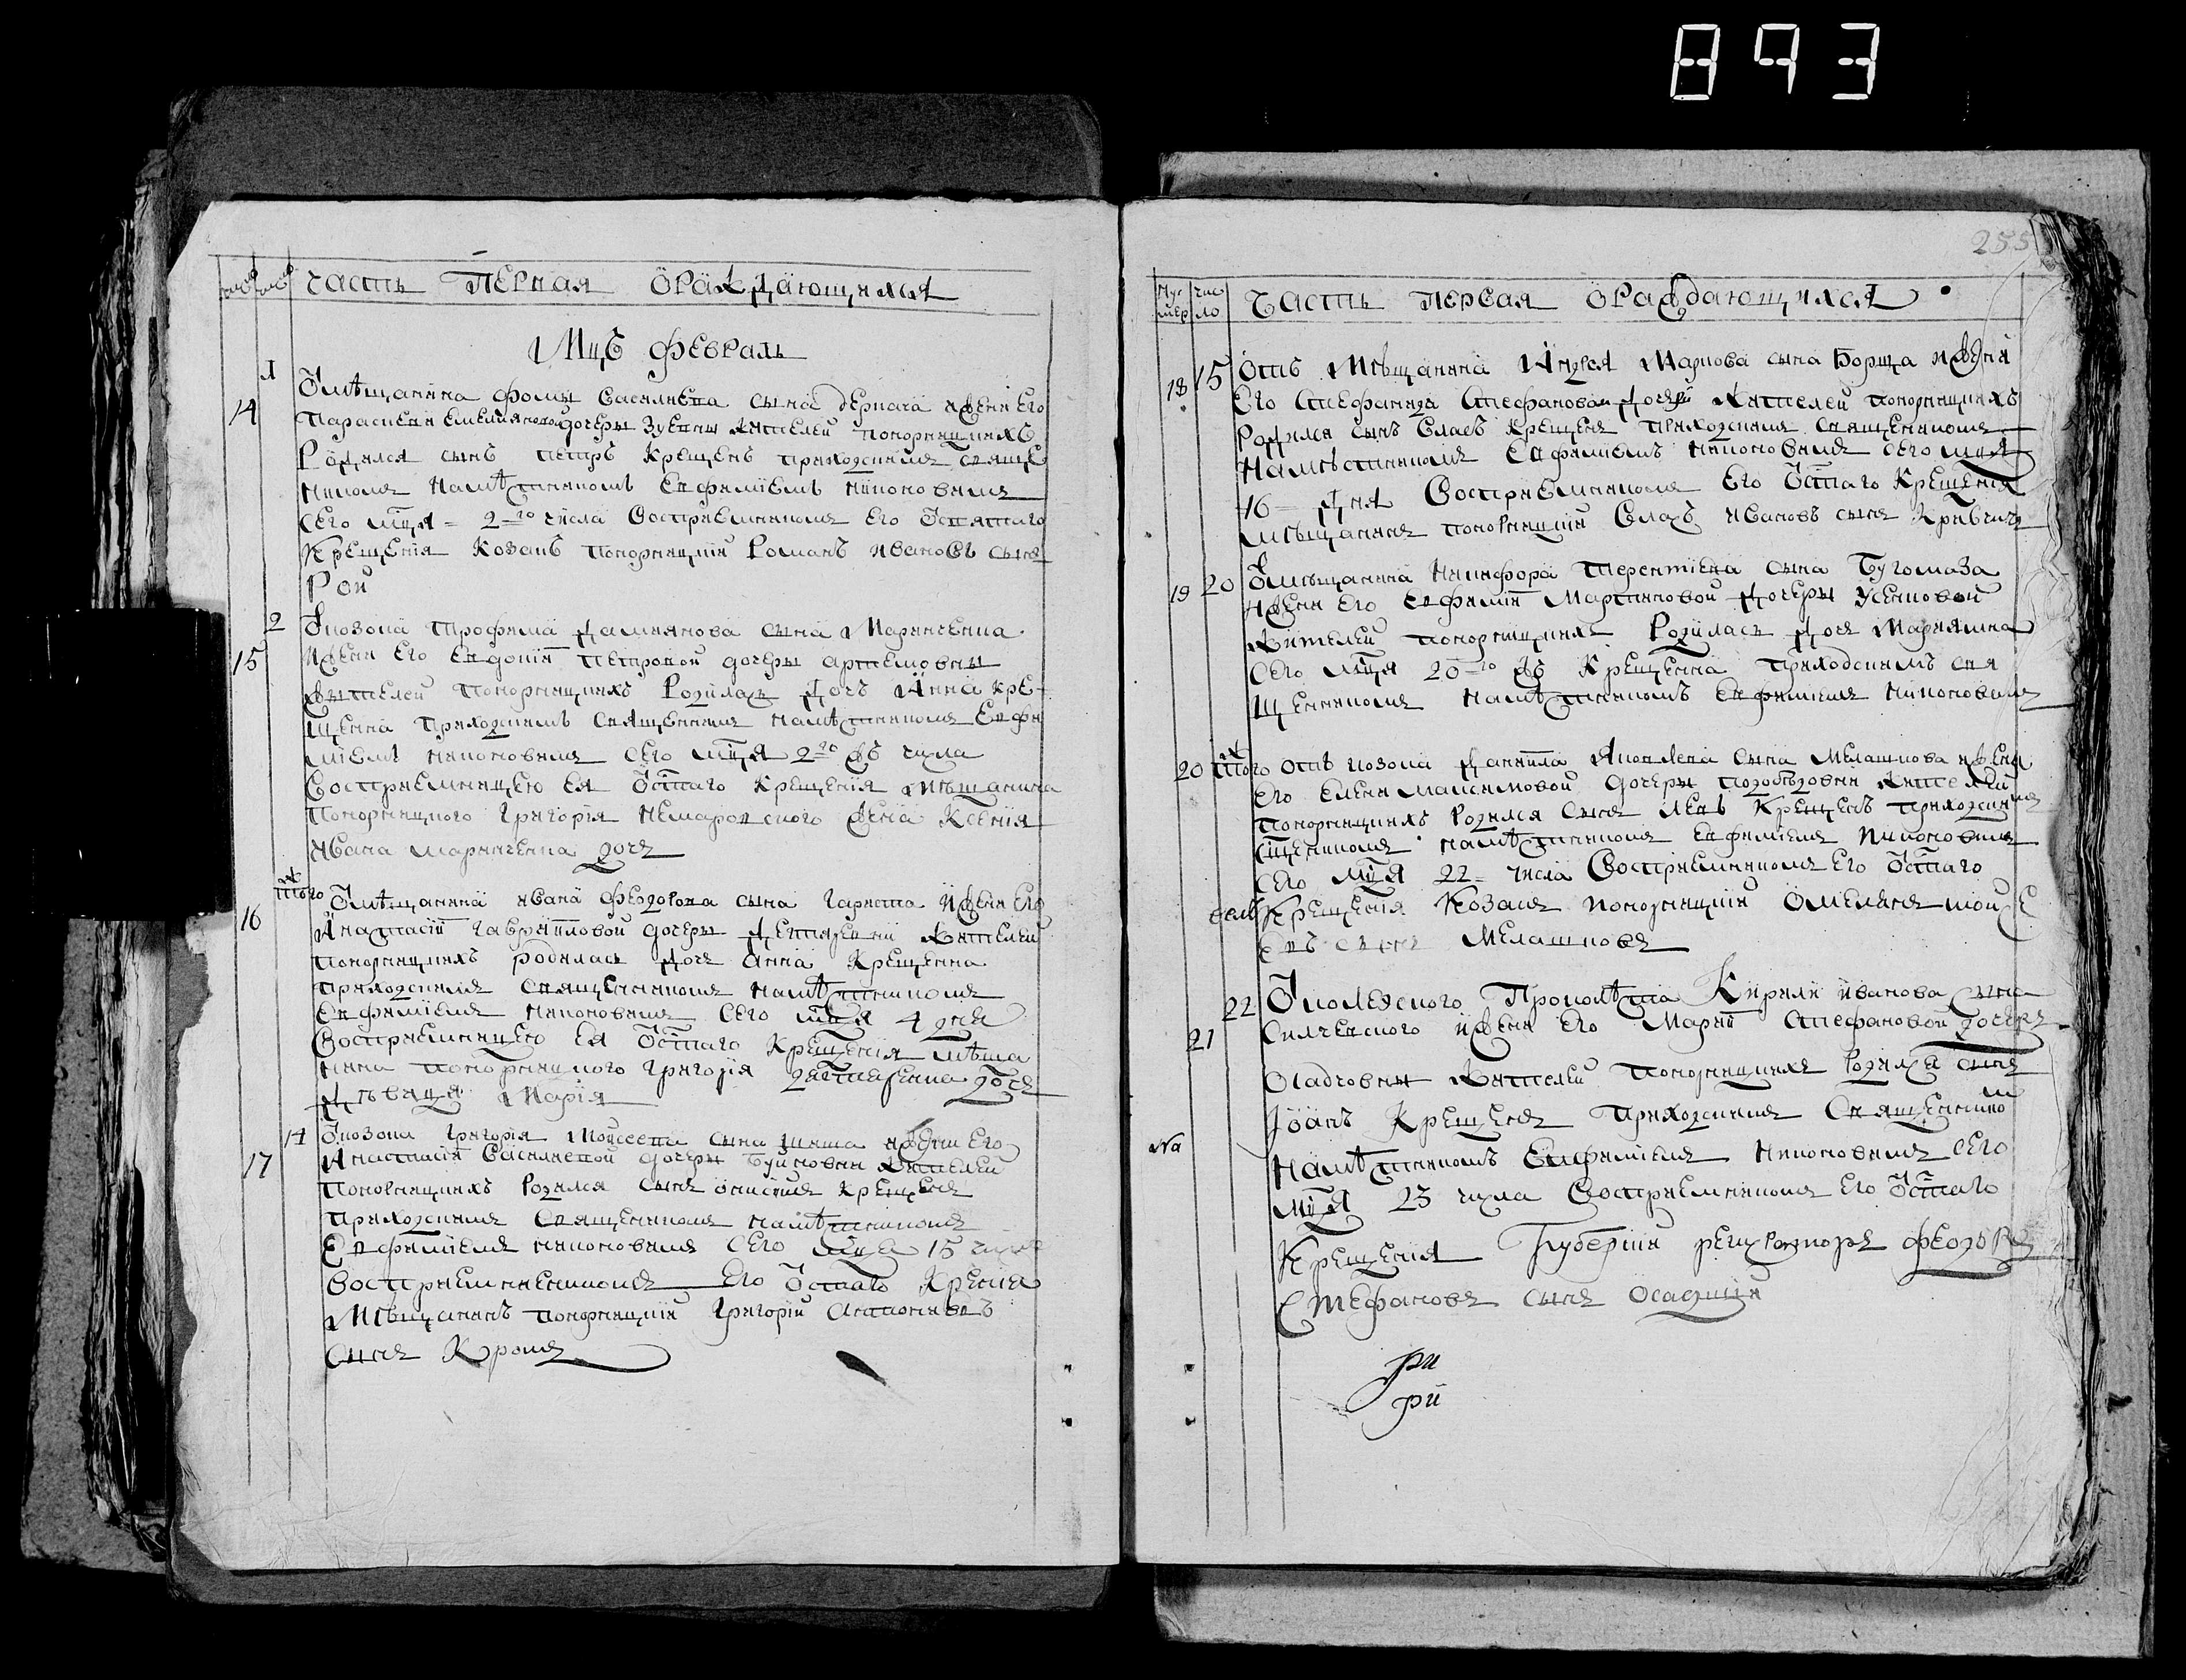 893
Часть первая ораждающихся
Мцъ февраль
14
1
Ӱмѣщанина Фомы Василиева сына дериача ижени его
Параскеви Емелияновой дочеры Зуевны жителей понорницкихъ
Родился сынъ Петръ крещенъ приходскимъ свяще
никомъ намѣстникомъ Евфимїемъ Никоновимъ
сего мця 2-го числа восприемникомъ его Ӱсвятаго
крещения козакъ понорницкїй Романъ Ивановъ сынъ
Рой
15
2
Ӱкозака Трофима Дамиянова сына Маринченка
ижени его Евдокїи Петровой дочеры Артемовны
жытелей понорницкихъ Родилась дочь Анна кре-
щенна приходскимъ священникомъ намѣстникомъ Евфи
мїемъ Никоновимъ сего мця 2го жъ числа
восприемницею ея Ӱстаго крещения мѣщанина
понорницкого Григорїя Немаровского жена Ксенїя
Ивана Маринченка дочь
16
того ж
Ӱмѣщанина Ивана Феодорова сына Гариста ижени его
Анастасїи Гаврииловой дочеры Детяревни жителей
понорницкихъ родилась дочь Анна крещенна
приходскимъ священникомъ намѣстникомъ
Евфимїемъ Никоновимъ сего мця 4 дня
восприемницею ея Ӱстаго крещения мѣща
нина понорницкого Григорїя дочь
дѣвица Марїя
17
14
Ӱкозака Григорїя Моисеева сына ижени его
Анастасїи Василиевой дочеры Буйновни жителей
понорницкихъ родился сынъ Онисимъ крещенъ
приходскимъ священикомъ намѣстникомъ
Евфимїемъ Никоновимъ сего мца 15 числа
восприемненикомъ его Ӱстаго крения
мѣщанинъ понорницкїй Григорїй Антоновъ
сынъ Кромъ
255
Нумер
число
Часть первая ораждающихся
18
15
Отъ мѣщанина Андрея Маркова сына Борща ижени
его Стефаниды Стефановой дочеры жителей понорницкихъ
родился сынъ Власъ крещенъ приходскимъ священикомъ
намѣстникомъ Евфимїемъ Никоновимъ сего мця
16 дня восприемникомъ его Ӱстаго крещения
мѣщанинъ понорницкїй Влахъ Ивановъ сынъ Кривичъ
19
20
Ӱмѣщанина Никифора Терентїева сына Бугомаза
ижени его Евфимїи Мартиновой дочеры Усенковой
жителей понорницкихъ родилась дочь Марияина
сего мця 20-го жъ крещенна приходскимъ свя
щенникомъ намѣстникомъ Евфимїемъ Никоновимъ
20
того ж
Отъ козака Данїила Яковлева сына Мелашкова ижени
его Елени Максимовой дочеры жителей
понорницкихъ родился сынъ Левъ крещенъ приходскимъ
сщеникомъ намѣстникомъ Евфимїемъ Никоновимъ
сего мця 22 числа восприемникомъ его Ӱстаго
крещения козакъ понорницкїй Омелянъ Мойсе
евъ сынъ Мелашковъ
21
22
Ӱколежского Кирили Иванова сына
Силчевского ижени его Марїи Стефановой дочеры
Осадчовны жителей понорницкихъ родился сынъ
Іоанъ крещенъ приходскимъ священником
На
намѣстникомъ Евфимїемъ Никоновимъ сего
мця 23 числа восприемникомъ его Ӱстаго
крещения Губернїи регистраторъ Феодоръ
Стефановъ сынъ Осадчїй
ри
ри